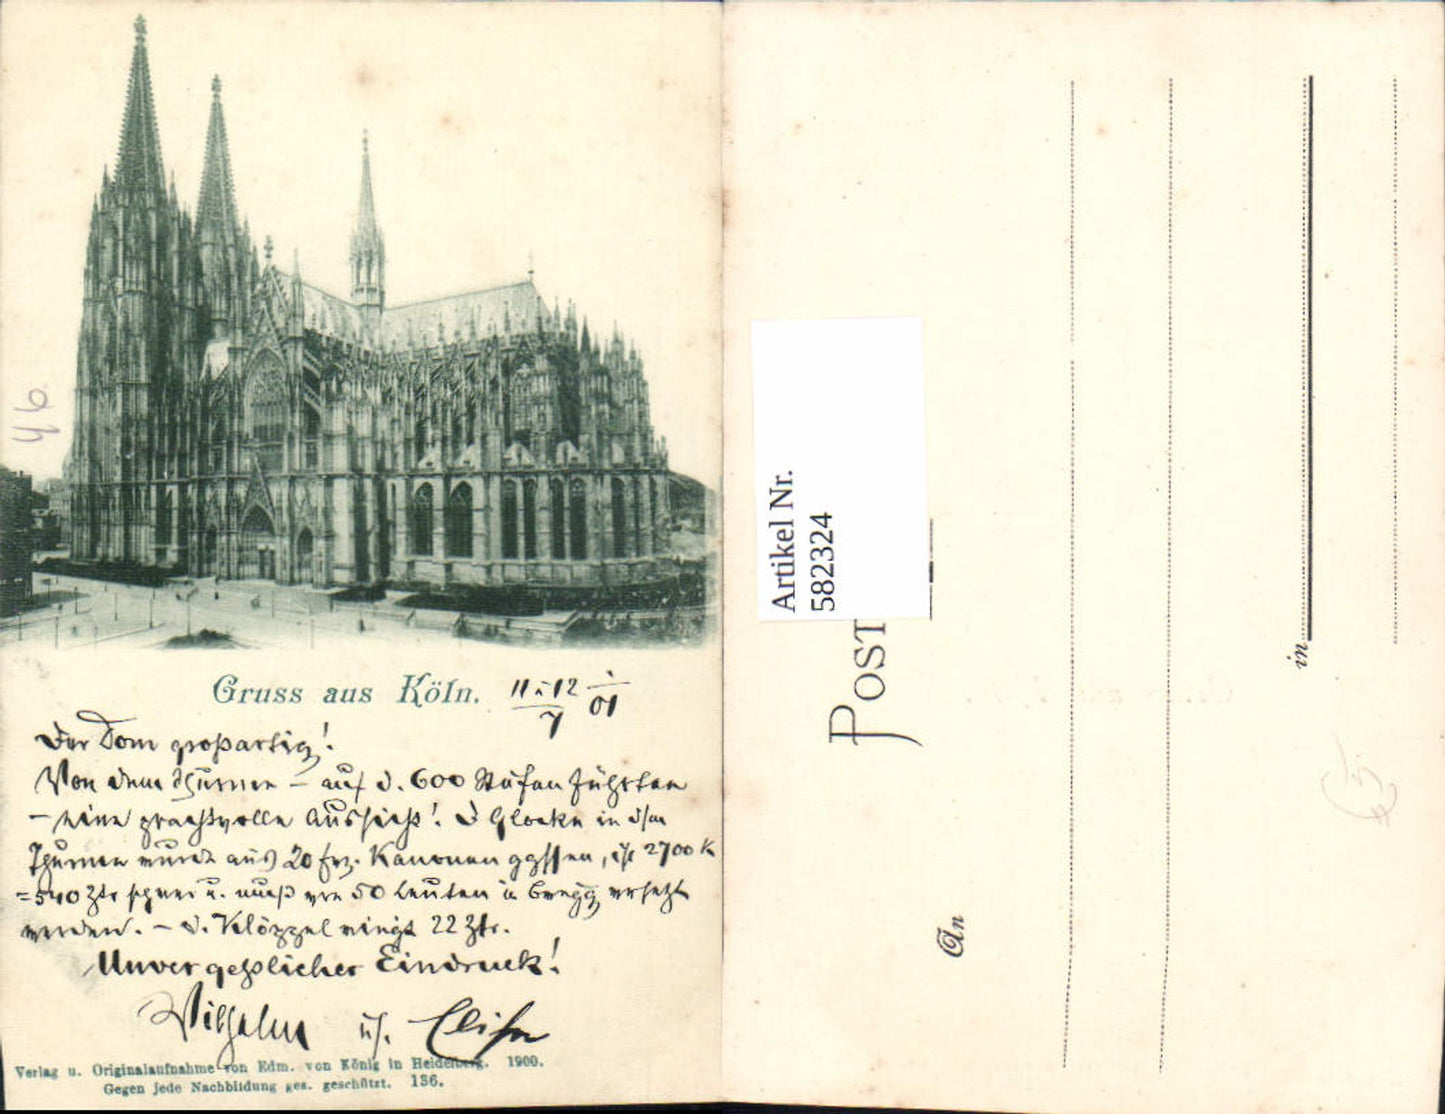 Gruss aus Köln. 11 u 12 / 7 01
Der Dom großartig!
Von dem Thurme – auf d. 600 Stufen führten
– eine prachtvolle Aussicht! D Glocke in
Thurme wurde aus 20 frz. Kanonen, ist 2700 K
= 540 Ztr schwer u. muß von 50 Leuten in versetzt
werden. – d. Klöppel wiegt 22 Ztr.
Unvergeßlicher Eindruck!
Wilhelm u.
Verlag u. Originalaufnahme von Edm. von König in Heidelberg. 1900.
Gegen jede Nachbildung ges. geschützt. 136.
46
Artikel Nr.
582324
POST
An
in